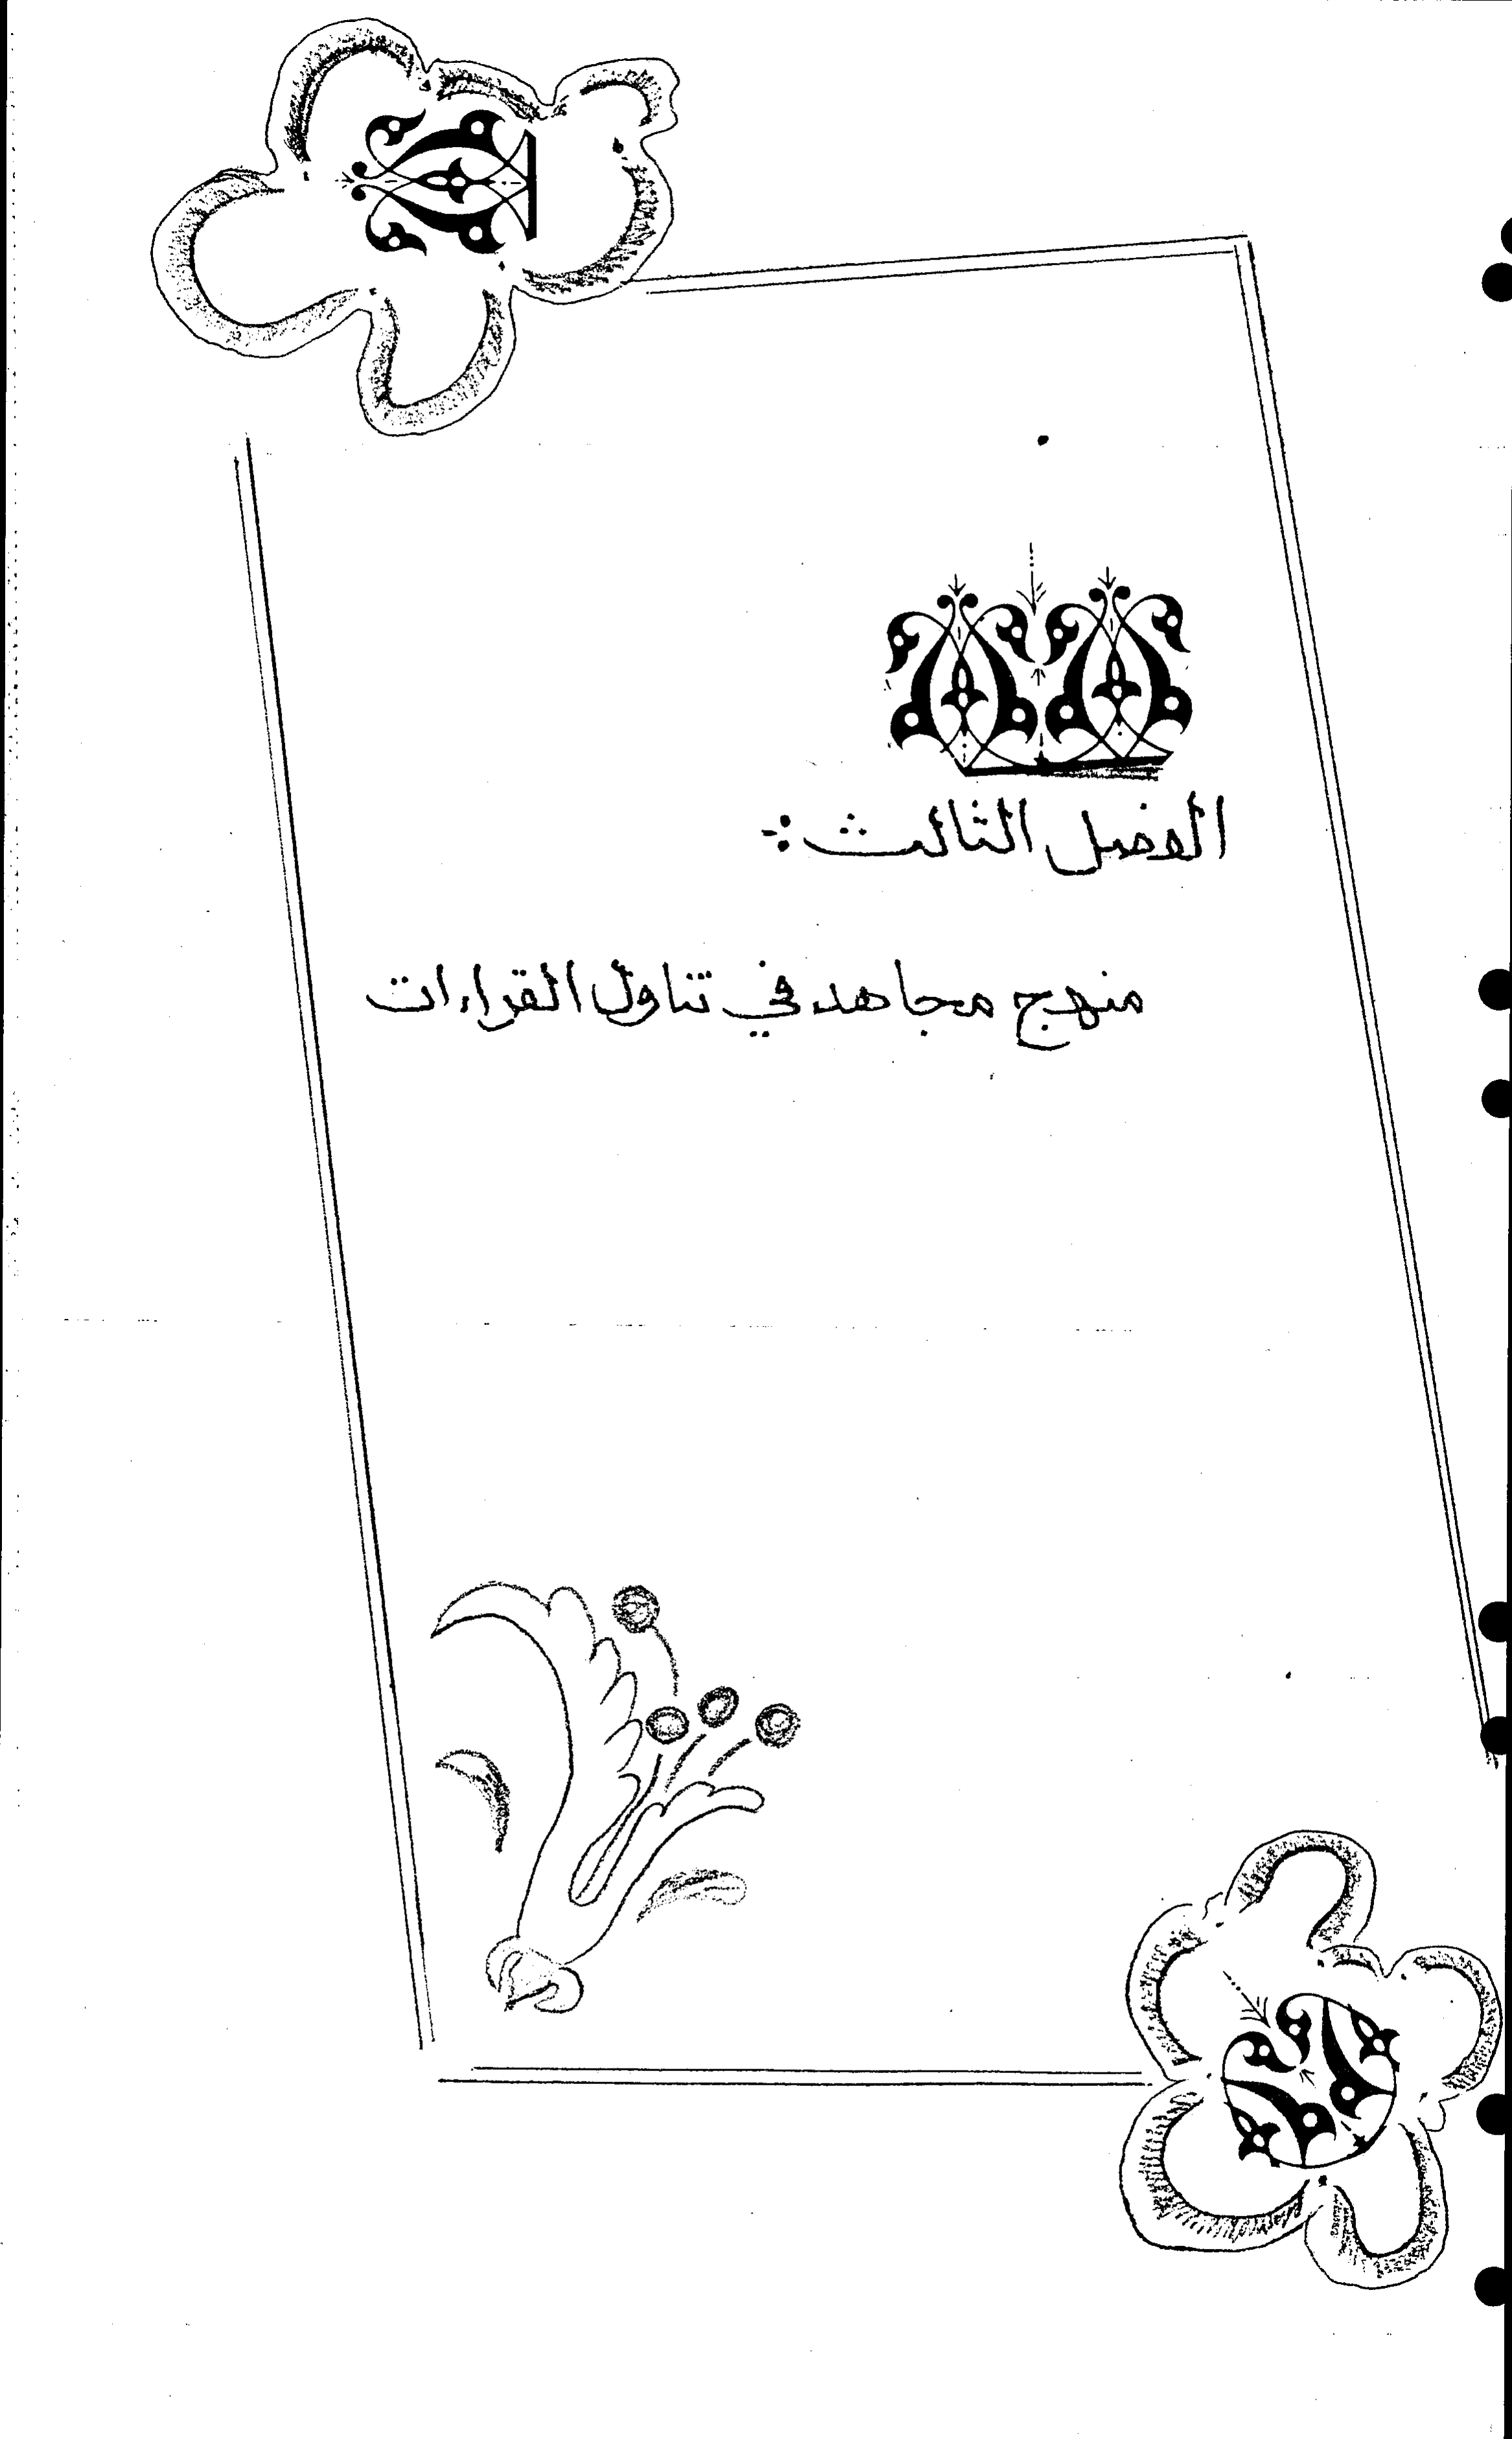 الفصل الثالث :-
منهج مجاهد في تناول القراءات